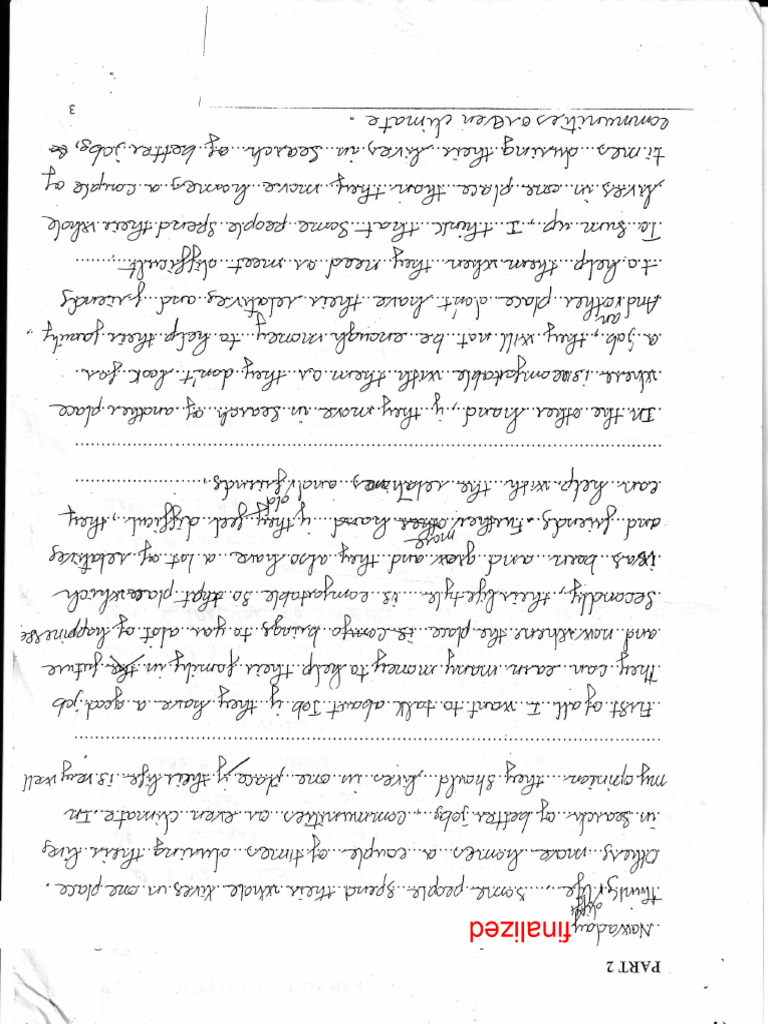 PART 2
Nowaday finalized
diff
think, life, some people spend their whole lives in one place.
Others move homes a couple of times during their lives
in search of better jobs, communities or even climate. In
my opinion they should lives in one place if their life is very well.
First of all I want to talk about Job if they have a good job
they can earn many money to help their family in the future
and now where the place is comfo brings to you alot of happinesse
Secondly, their lifestyle is comfortable so that place which
is was born and grow and they also have a lot of relatives
more
and friends. Further other hand if they feel difficult, they
old
can help with the relatives and friends,
In the other hand, if they move in search of another place
where is comfortable with them or they don't look for
a job, they will not be enough money to help their family,
And if other place don't have their relatives and friends
an
to help them when they need or meet difficult,
To sum up, I think that some people spend their whole
lives in one place than they move homes a couple of
times during their lives in search of better jobs,
communities or even climate.
3